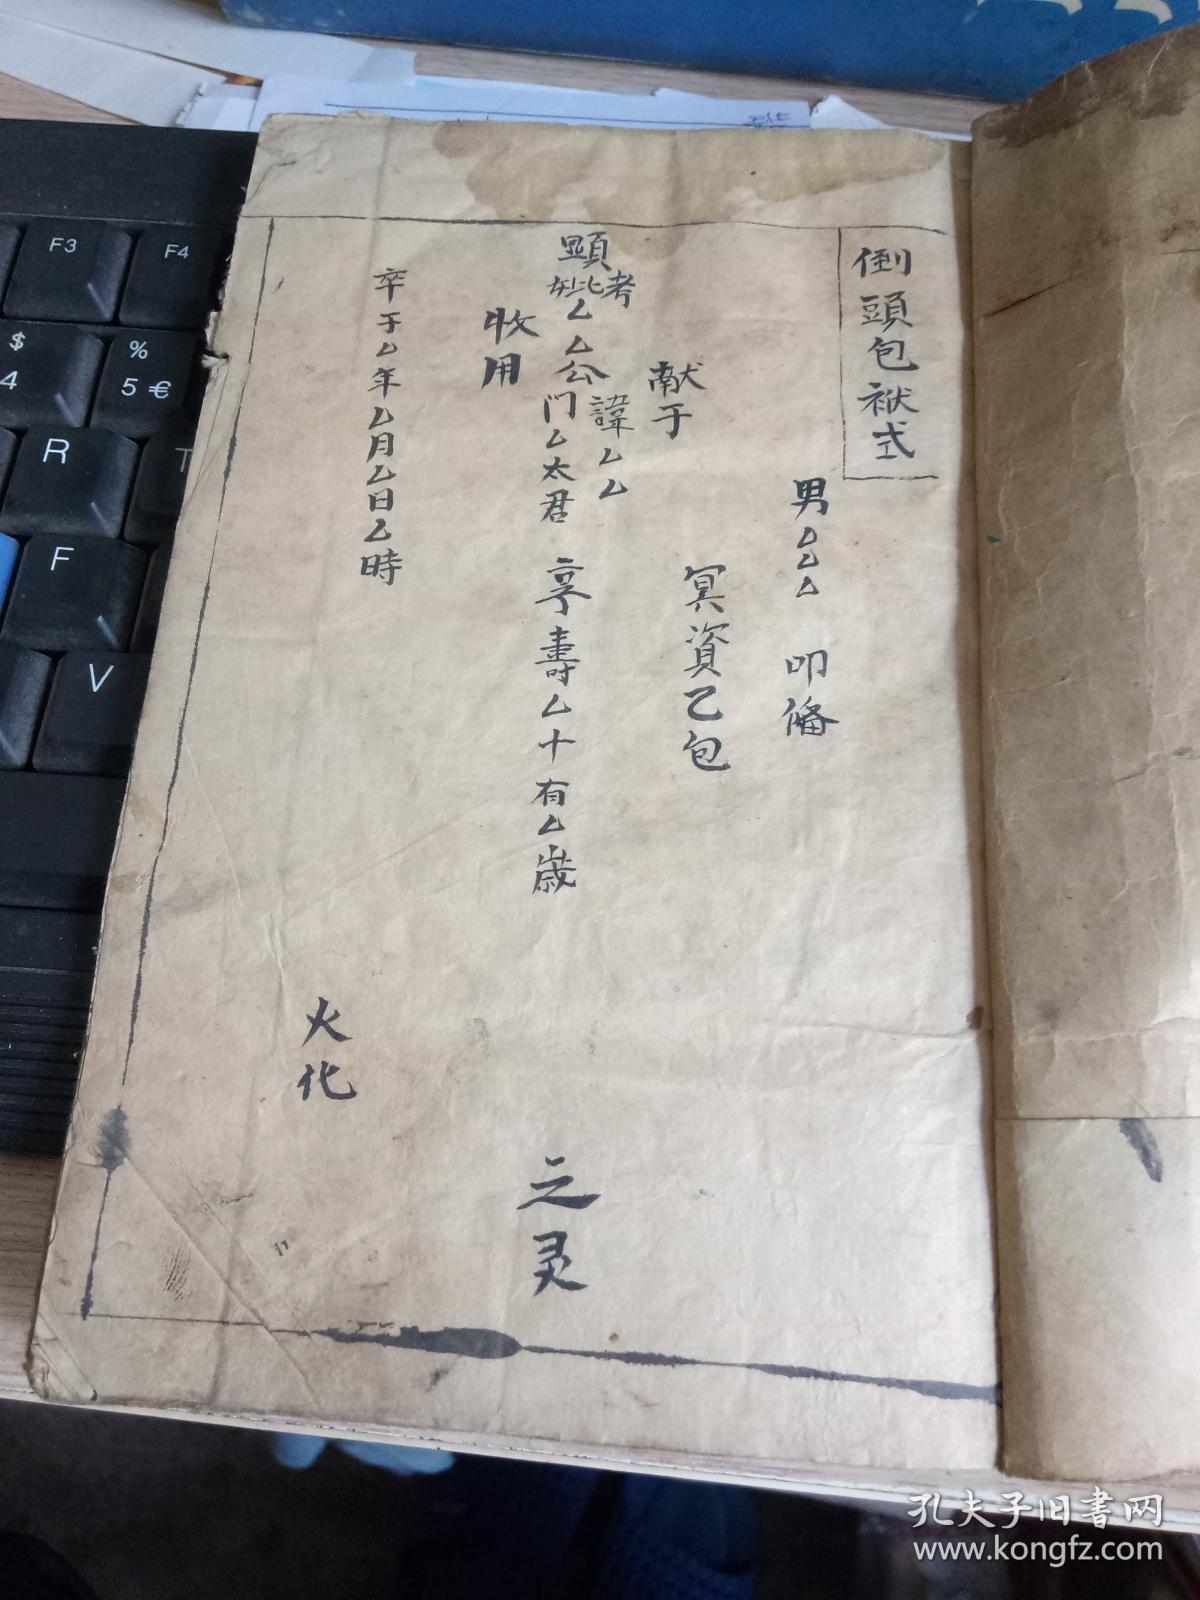 倒頭包袱式
男厶厶厶 叩俻
冥資乙包
献于
顯考妣厶厶公諱厶厶門厶太君 享壽厶十有厶歲 之灵
收用
卒于厶年厶月厶日厶時
火化
F3
F4
$
4
%
5 €
R
T
F
V
孔夫子旧书网
www.kongfz.com